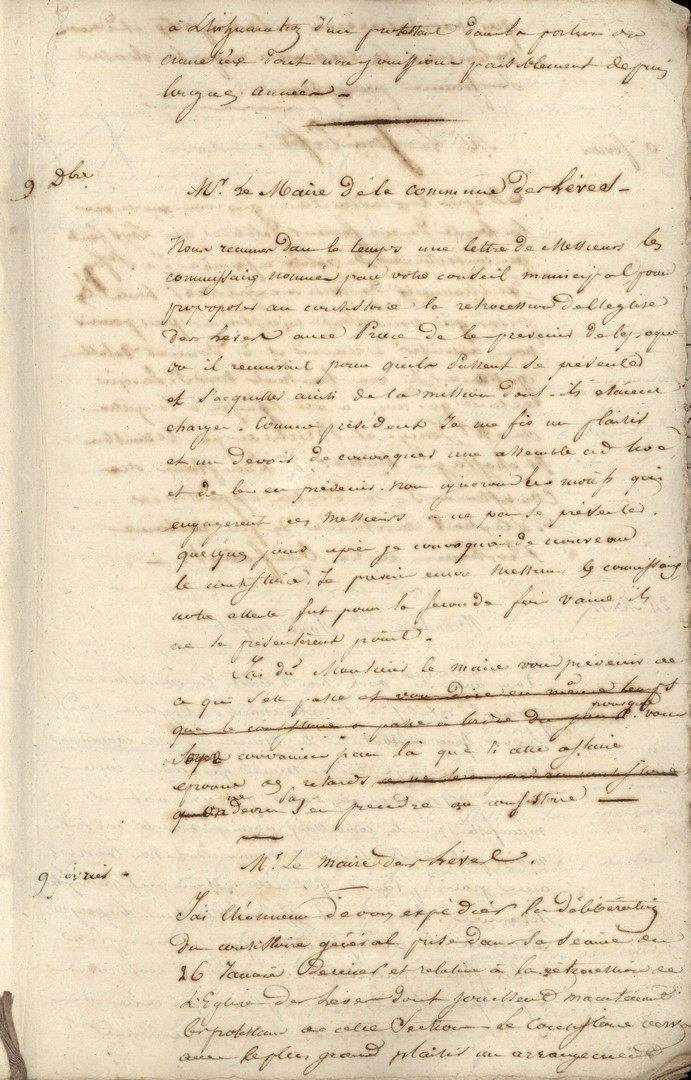 à L'inhumation d'un protestant dans la portion du
cimetière dont nous jouissions paisiblement depuis
longues années -
9 Dbre
Mr. Le Maire de la commune des hères -
Nous recumes dans le temps une lettre de Messieurs les
commissaires nommés par votre conseil municipal pour
proposer au consistoire la retrocession de l'eglise
avec Priere de les prévenir de l'époque
ou il reuniroit pour qu'ils Pussent se présenter
et s'acquitter ainsi de la mission dont ils étaient
charger. Comme président Je me fis un plaisir
et un devoir de convoquer une assemblé ad hoc
et de les en prévenir. Nous ignorons les motifs qui
engagerent ces Messieurs à ne pas se présenter.
quelques jours après je convoquai de nouveau
le consistoire. Je prévins encore Messieurs les commissaires
notre attente fut pour la seconde fois vaine ils
ne se présentèrent point.
J'ai du Monsieur le maire vous prévenir de
ce qui s'est passé et vous dire en même temps
que le consistoire a passé à l'ordre du jour pour que vous
soyez convaincu par là que si cette affaire
eprouve des retards ce ne sera pas au consistoire
qu'on ne devra s'en prendre au consistoire —
9 évrier -
Mr. Le maire des hères.
J'ai l'honneur de vous expédier la délibération
du consistoire général prise dans sa séance du
26 Janvier Dernier et relative à la rétrocession de
L'Eglise des hères dont jouissent maintenant
les protestans de cette Section. Le Consistoire verra
avec le plus grand plaisir un arrangement